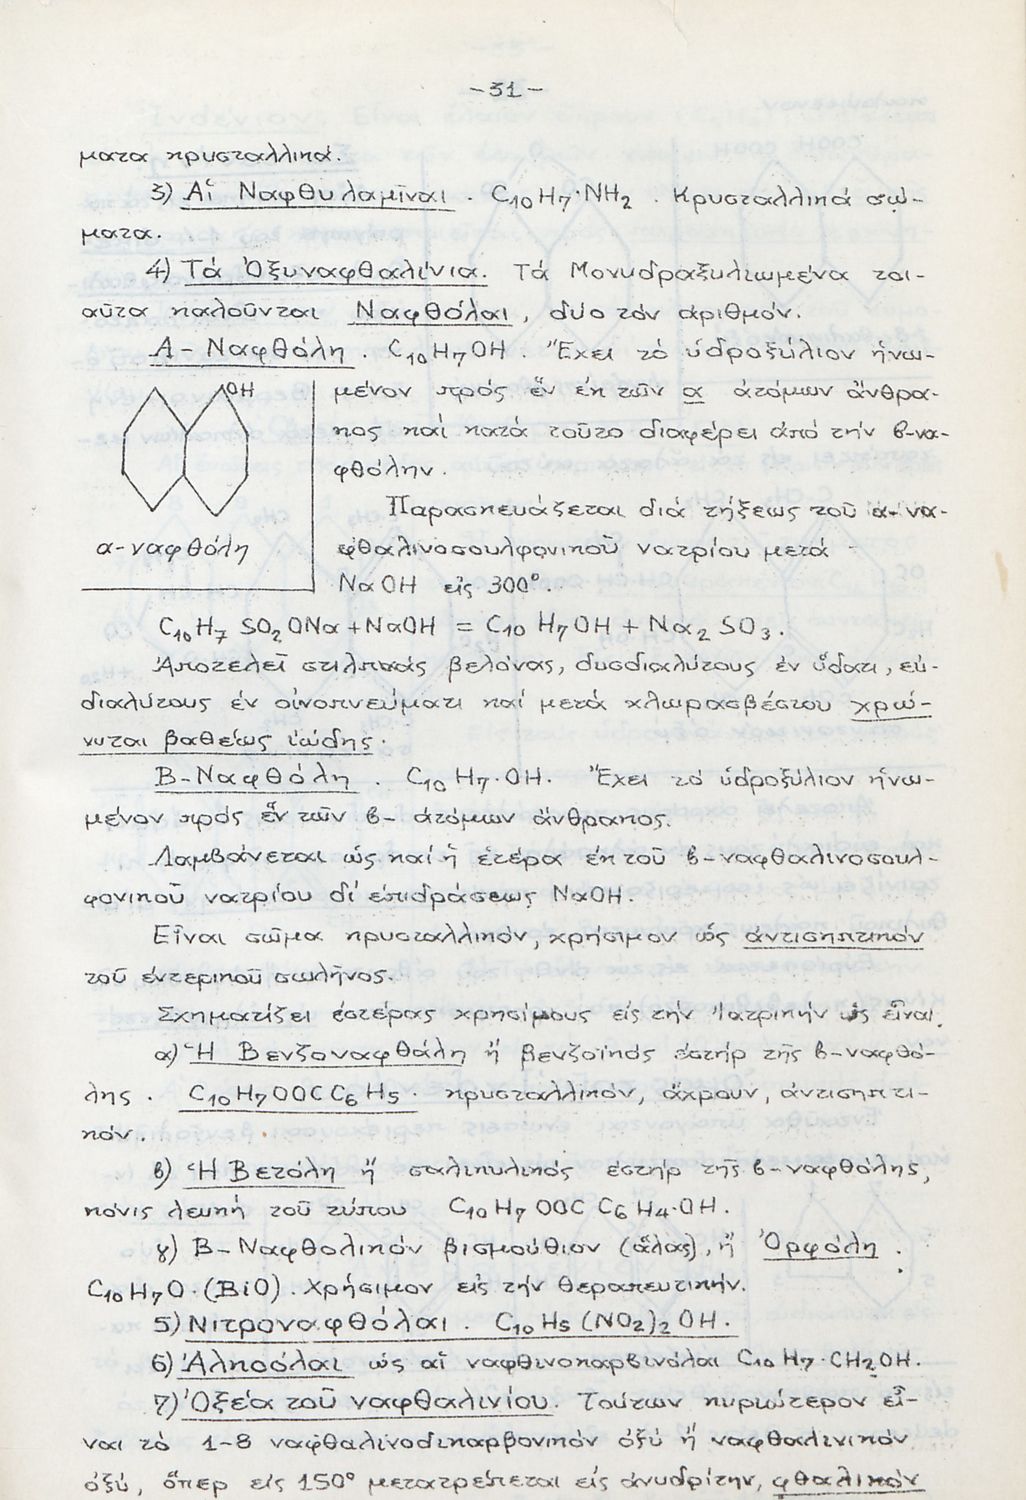 -31-
ματα κρυσταλλικά.
3) Αἱ Ναφθυλαμῖναι. C10H7·NH2. Κρυσταλλικά σώ-
ματα.
4) Τά Ὀξυναφθαλίνια. Τά Μονυδραξυλιωμένα τοι-
αῦτα καλοῦνται Ναφθόλαι, δύο τόν ἀριθμόν.
Α-Ναφθόλη. C10H7OH. Ἔχει τό ὑδροξύλιον ἡνω-
OH
μένον πρός ἕν ἐκ τῶν α ἀτόμων ἄνθρα-
κος καί κατά τοῦτο διαφέρει ἀπό τήν β-να-
φθόλην.
α-ναφθόλη
Παρασκευάζεται διά τήξεως τοῦ α-να-
φθαλινοσουλφονικοῦ νατρίου μετά
NaOH εἰς 300°.
C10H7 SO2 ONa + NaOH = C10 H7OH + Na2 SO3.
Ἀποτελεῖ στιλπνάς βελόνας, δυσδιαλύτους ἐν ὕδατι, εὐ-
διαλύτους ἐν οἰνοπνεύματι καί μετά χλωρασβέστου χρώ-
νυται βαθέως ἰώδης.
Β-Ναφθόλη. C10 H7·OH. Ἔχει τό ὑδροξύλιον ἡνω-
μένον πρός ἕν τῶν β- ἀτόμων ἄνθρακος.
Λαμβάνεται ὡς καί ἡ ἑτέρα ἐκ τοῦ β-ναφθαλινοσουλ-
φονικοῦ νατρίου δι' ἐπιδράσεως NaOH.
Εἶναι σῶμα κρυσταλλικόν, χρήσιμον ὡς ἀντισηπτικόν
τοῦ ἐντερικοῦ σωλῆνος.
Σχηματίζει ἐστέρας χρησίμους εἰς τήν Ἰατρικήν ὡς εἶναι.
α) Ἡ Βενζοναφθόλη ἤ βενζοϊκός ἐστήρ τῆς β-ναφθό-
λης. C10H7OOCC6H5. κρυσταλλικόν, ἄχρουν, ἀντισηπτι-
κόν.
β) Ἡ Βετόλη ἤ σαλικυλικός ἐστήρ τῆς β-ναφθόλης,
κόνις λευκή τοῦ τύπου C10H7 OOC C6 H4·OH.
γ) Β-Ναφθολικόν βισμούθιον (ἅλας), ἤ Ὀρφόλη.
C10H7O·(BiO). Χρήσιμον εἰς τήν θεραπευτικήν.
5) Νιτροναφθόλαι. C10 H5 (NO2)2 OH.
6) Ἀλκοόλαι ὡς αἱ ναφθινοκαρβινόλαι C10 H7·CH2OH.
7) Ὀξέα τοῦ ναφθαλινίου. Τούτων κυριώτερον εἶ-
ναι τό 1-8 ναφθαλινοδικαρβονικόν ὀξύ ἤ ναφθαλινικόν
ὀξύ, ὅπερ εἰς 150° μετατρέπεται εἰς ἀνυδρίτην, φθαλικόν